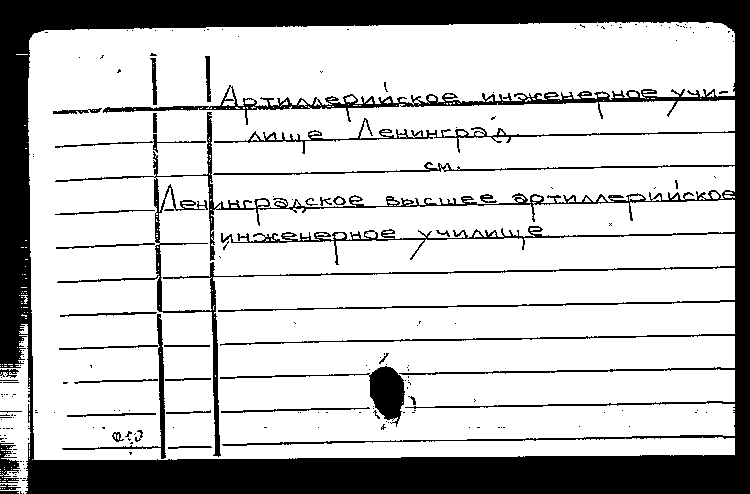 Артиллерийское инженерное учи-
лище Ленинград
см.
Ленинградское высшее артиллерийское
инженерное училище